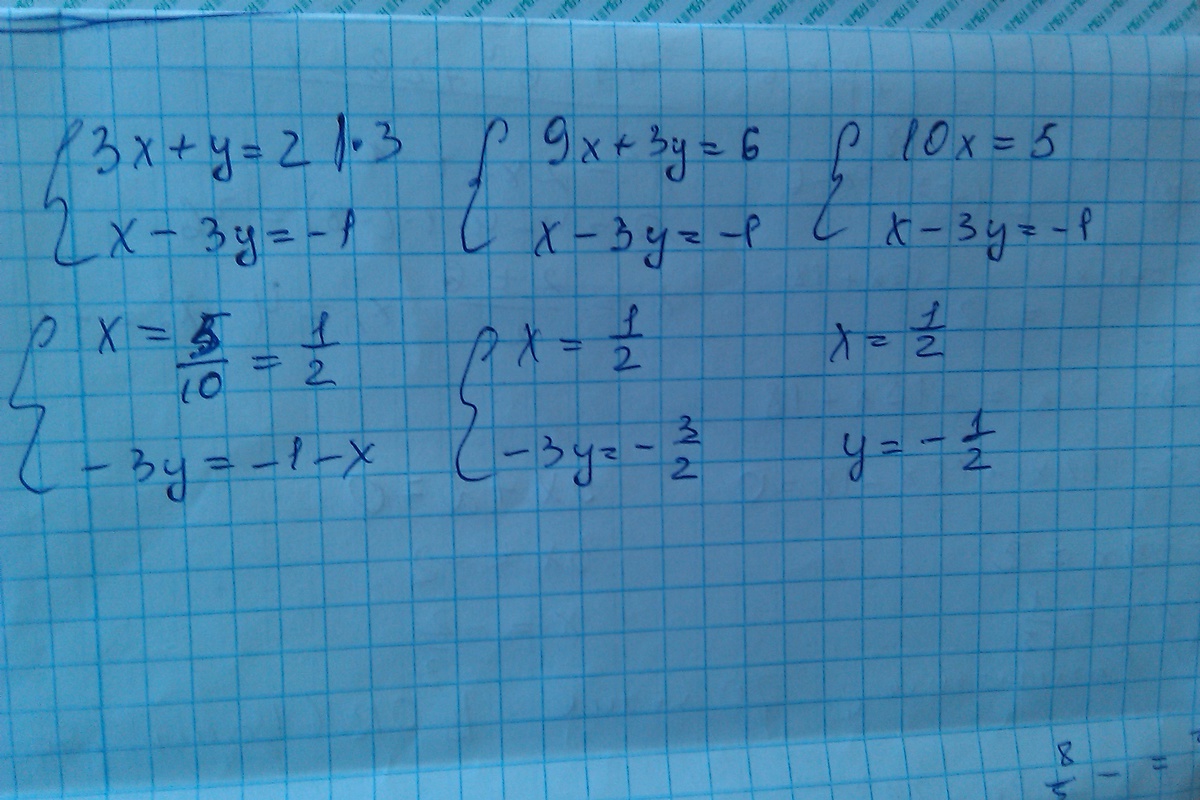 3x + y = 2 |·3
x − 3y = −1
9x + 3y = 6
x − 3y = −1
10x = 5
x − 3y = −1
x = 5/10 = 1/2
−3y = −1 − x
x = 1/2
−3y = −3/2
x = 1/2
y = −1/2
8/5 − =